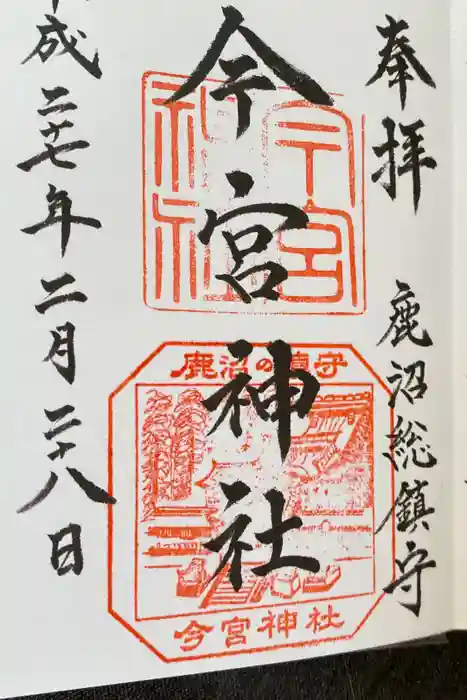 奉拝
鹿沼総鎮守
今宮神社
今宮神社
鹿沼の鎮守
今宮神社
平成二十七年二月二十八日